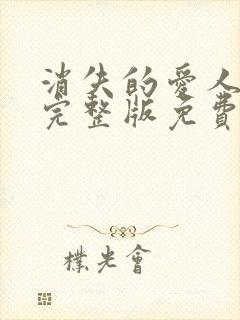 消失的爱人
完整版免費
樸光會